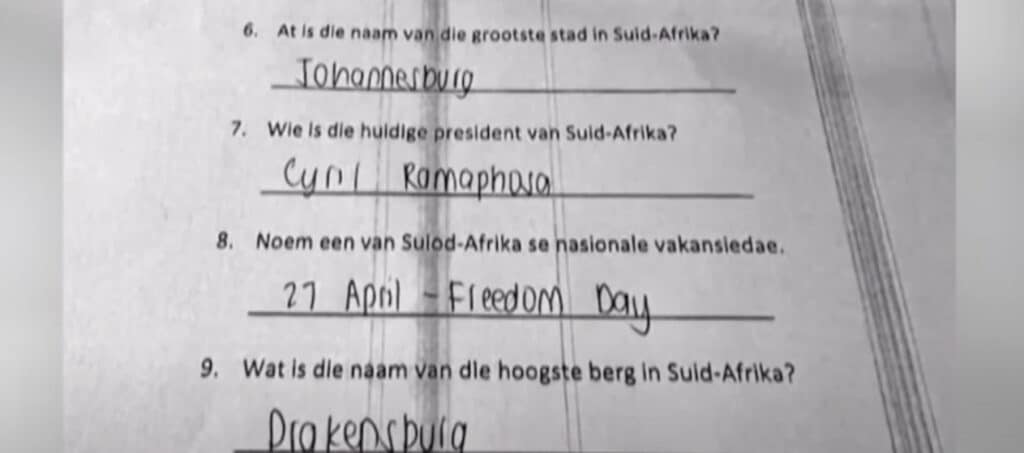 6. At is die naam van die grootste stad in Suid-Afrika?
Johannesburg
7. Wie is die huidige president van Suid-Afrika?
Cyril Ramaphosa
8. Noem een van Suiod-Afrika se nasionale vakansiedae.
27 April - Freedom Day
9. Wat is die naam van die hoogste berg in Suid-Afrika?
Drakensburg